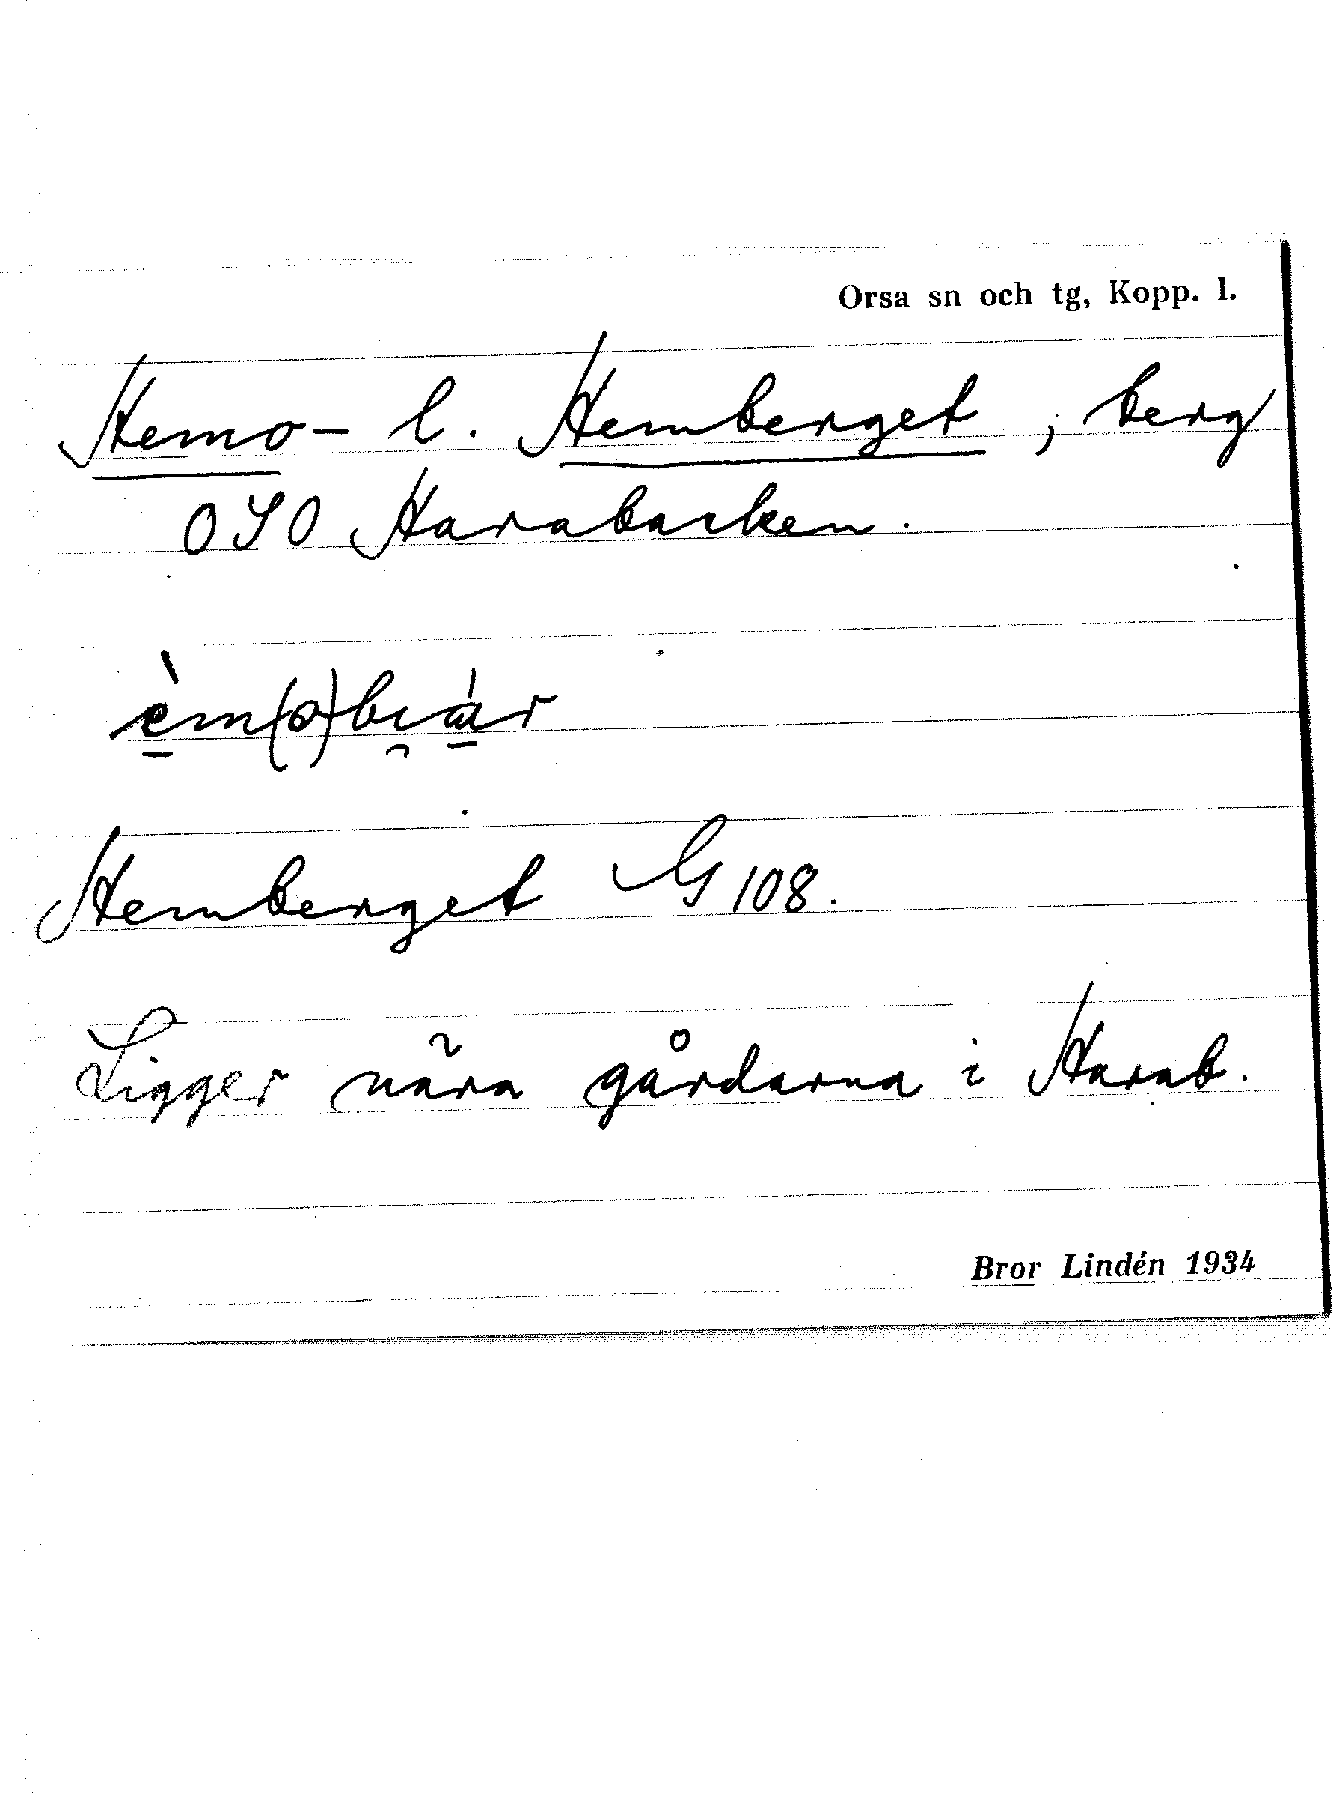 Orsa sn och tg, Kopp. l.
Hemo- l. Hemberget, berg
OSO Harabacken.
èm(o)bi̯ár
Hemberget G 108.
Ligger nära gårdarna i Harab.
Bror Lindén 1934